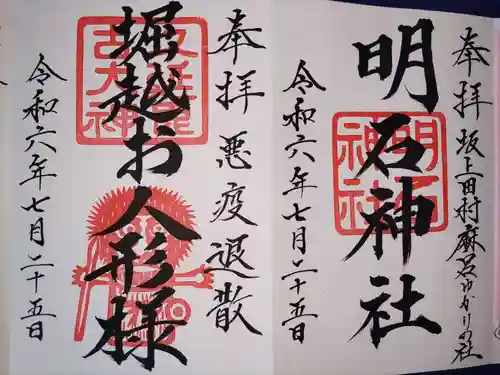 奉拝 坂上田村麻呂ゆかりの社
明石神社
令和六年七月二十五日
奉拝 悪疫退散
堀越お人形様
令和六年七月二十五日
明石神社